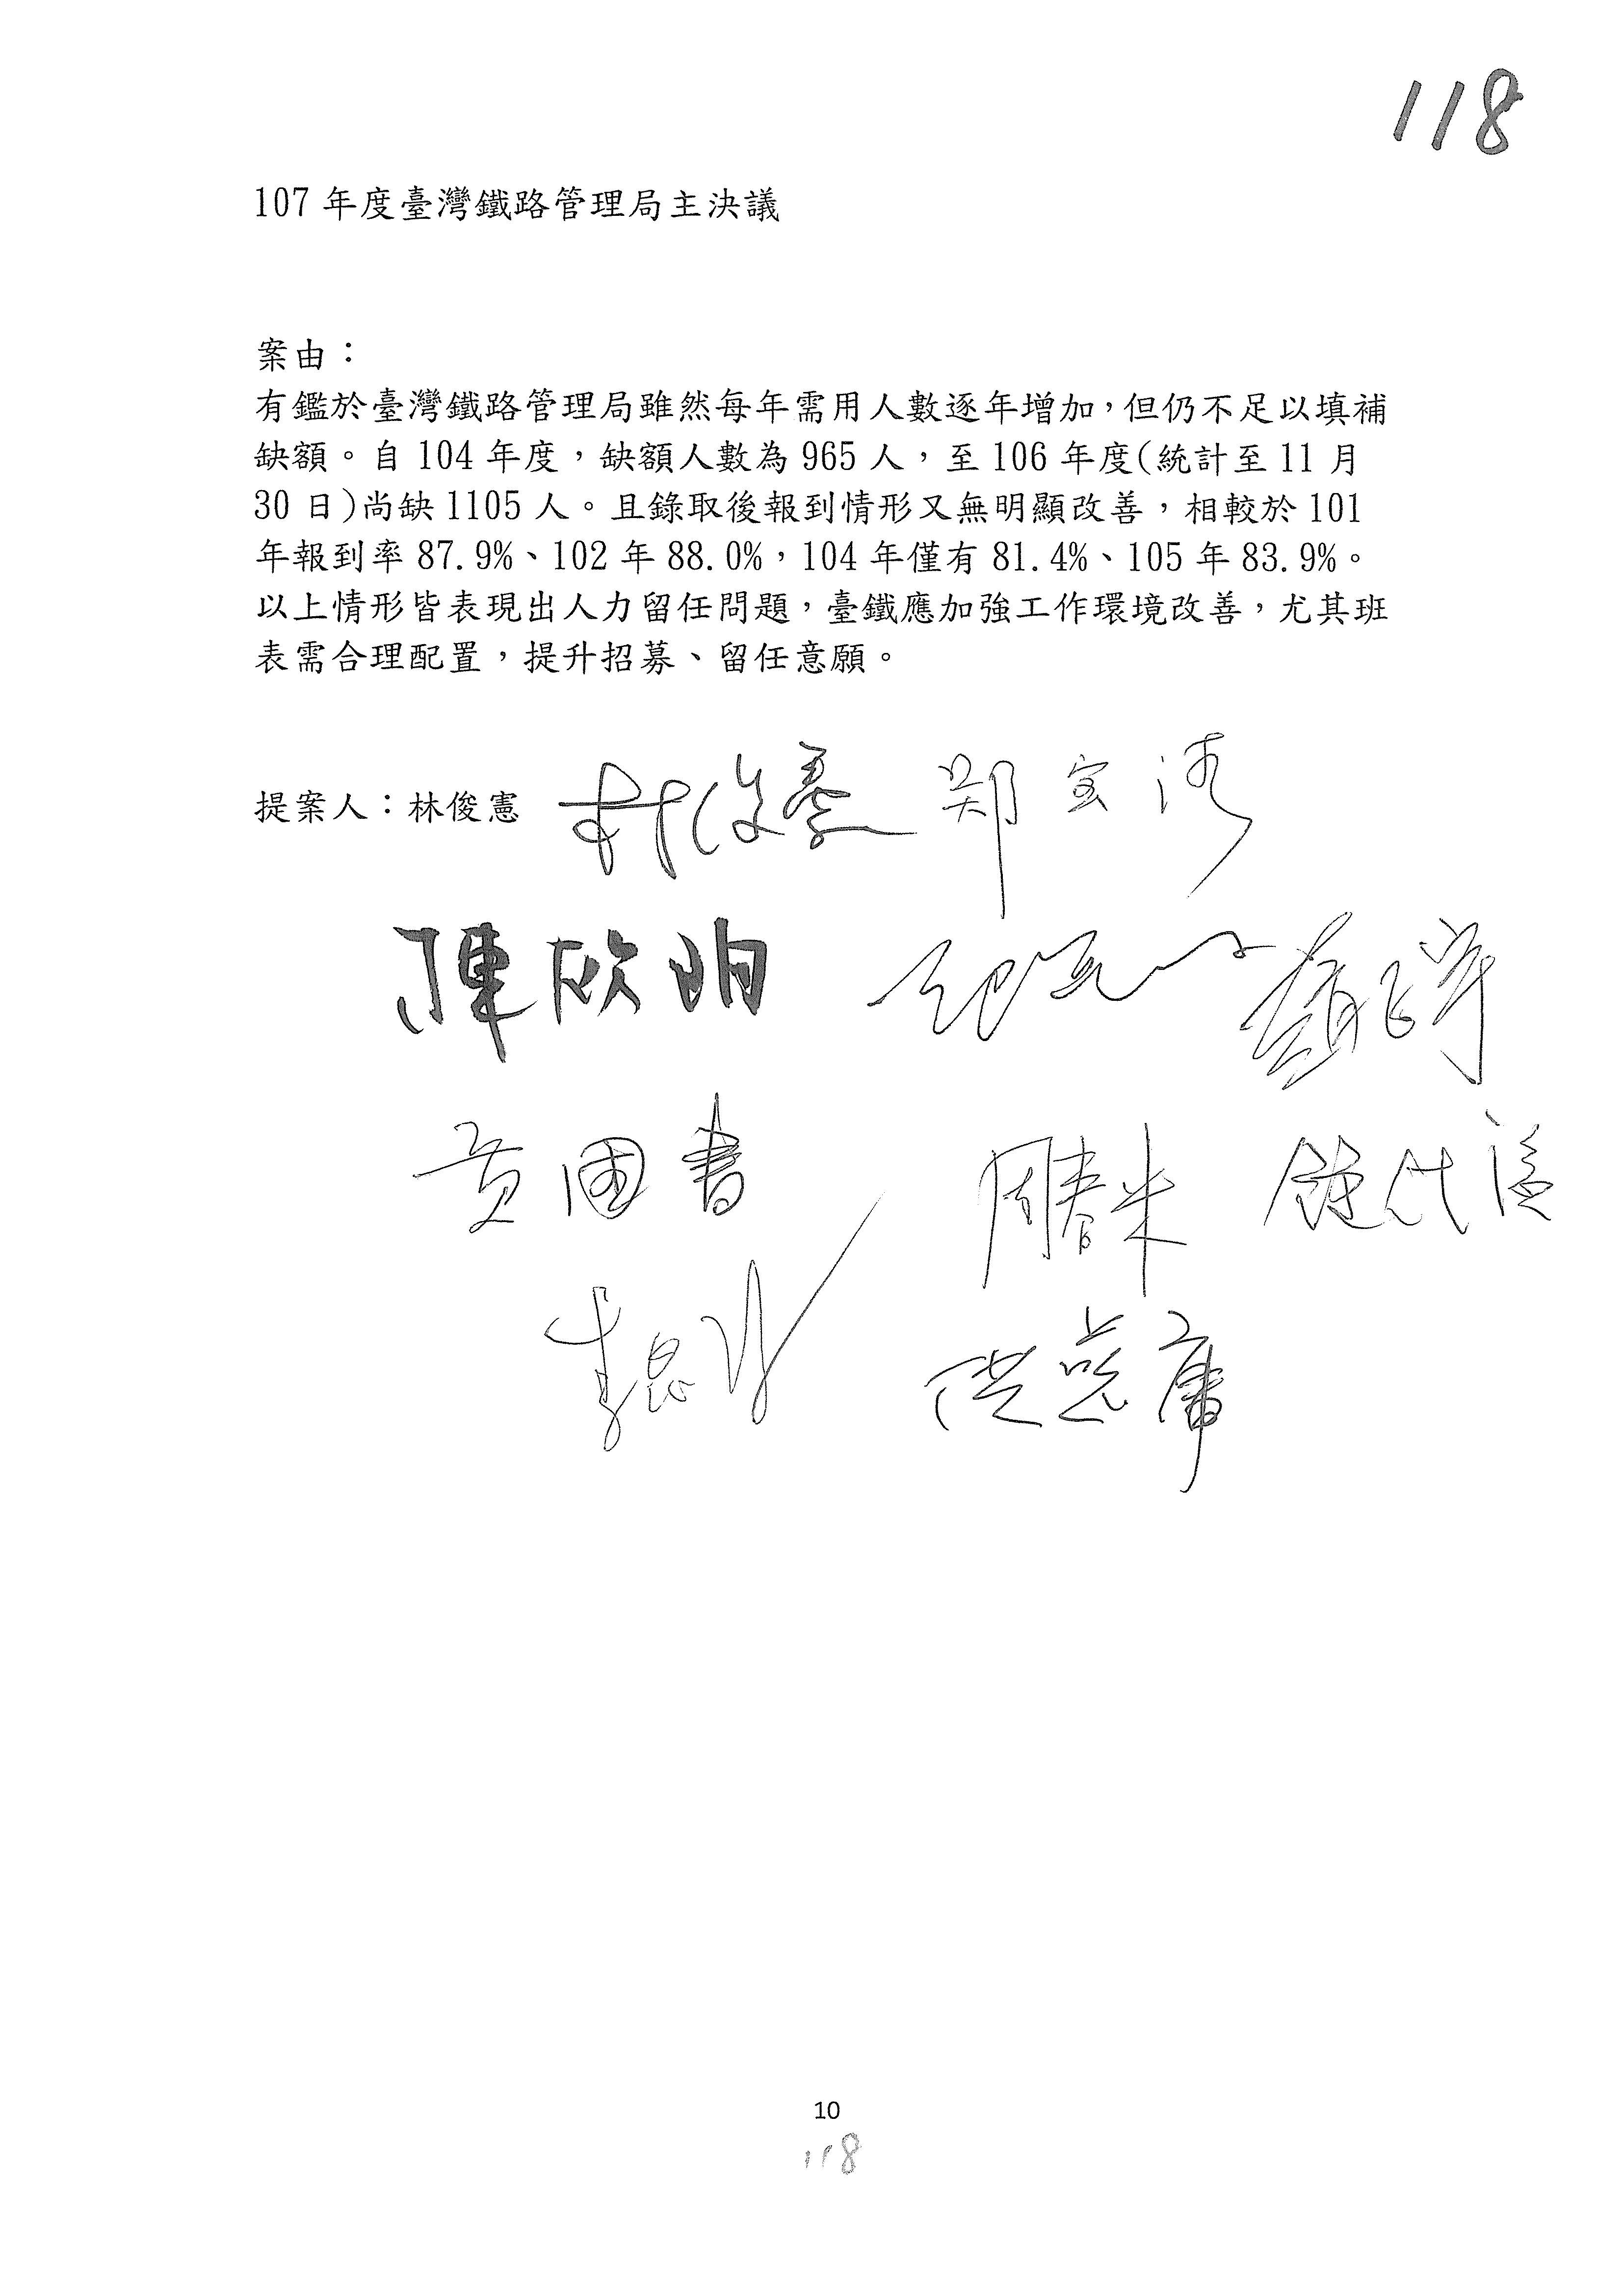 118
107 年度臺灣鐵路管理局主決議
案由：
有鑑於臺灣鐵路管理局雖然每年需用人數逐年增加，但仍不足以填補
缺額。自 104 年度，缺額人數為 965 人，至 106 年度(統計至 11 月
30 日)尚缺 1105 人。且錄取後報到情形又無明顯改善，相較於 101
年報到率 87.9%、102 年 88.0%，104 年僅有 81.4%、105 年 83.9%。
以上情形皆表現出人力留任問題，臺鐵應加強工作環境改善，尤其班
表需合理配置，提升招募、留任意願。
提案人：林俊憲 林俊憲 鄭宝清
陳歐珀
黃國書 周春米 鍾佳濱
洪慈庸
10
118